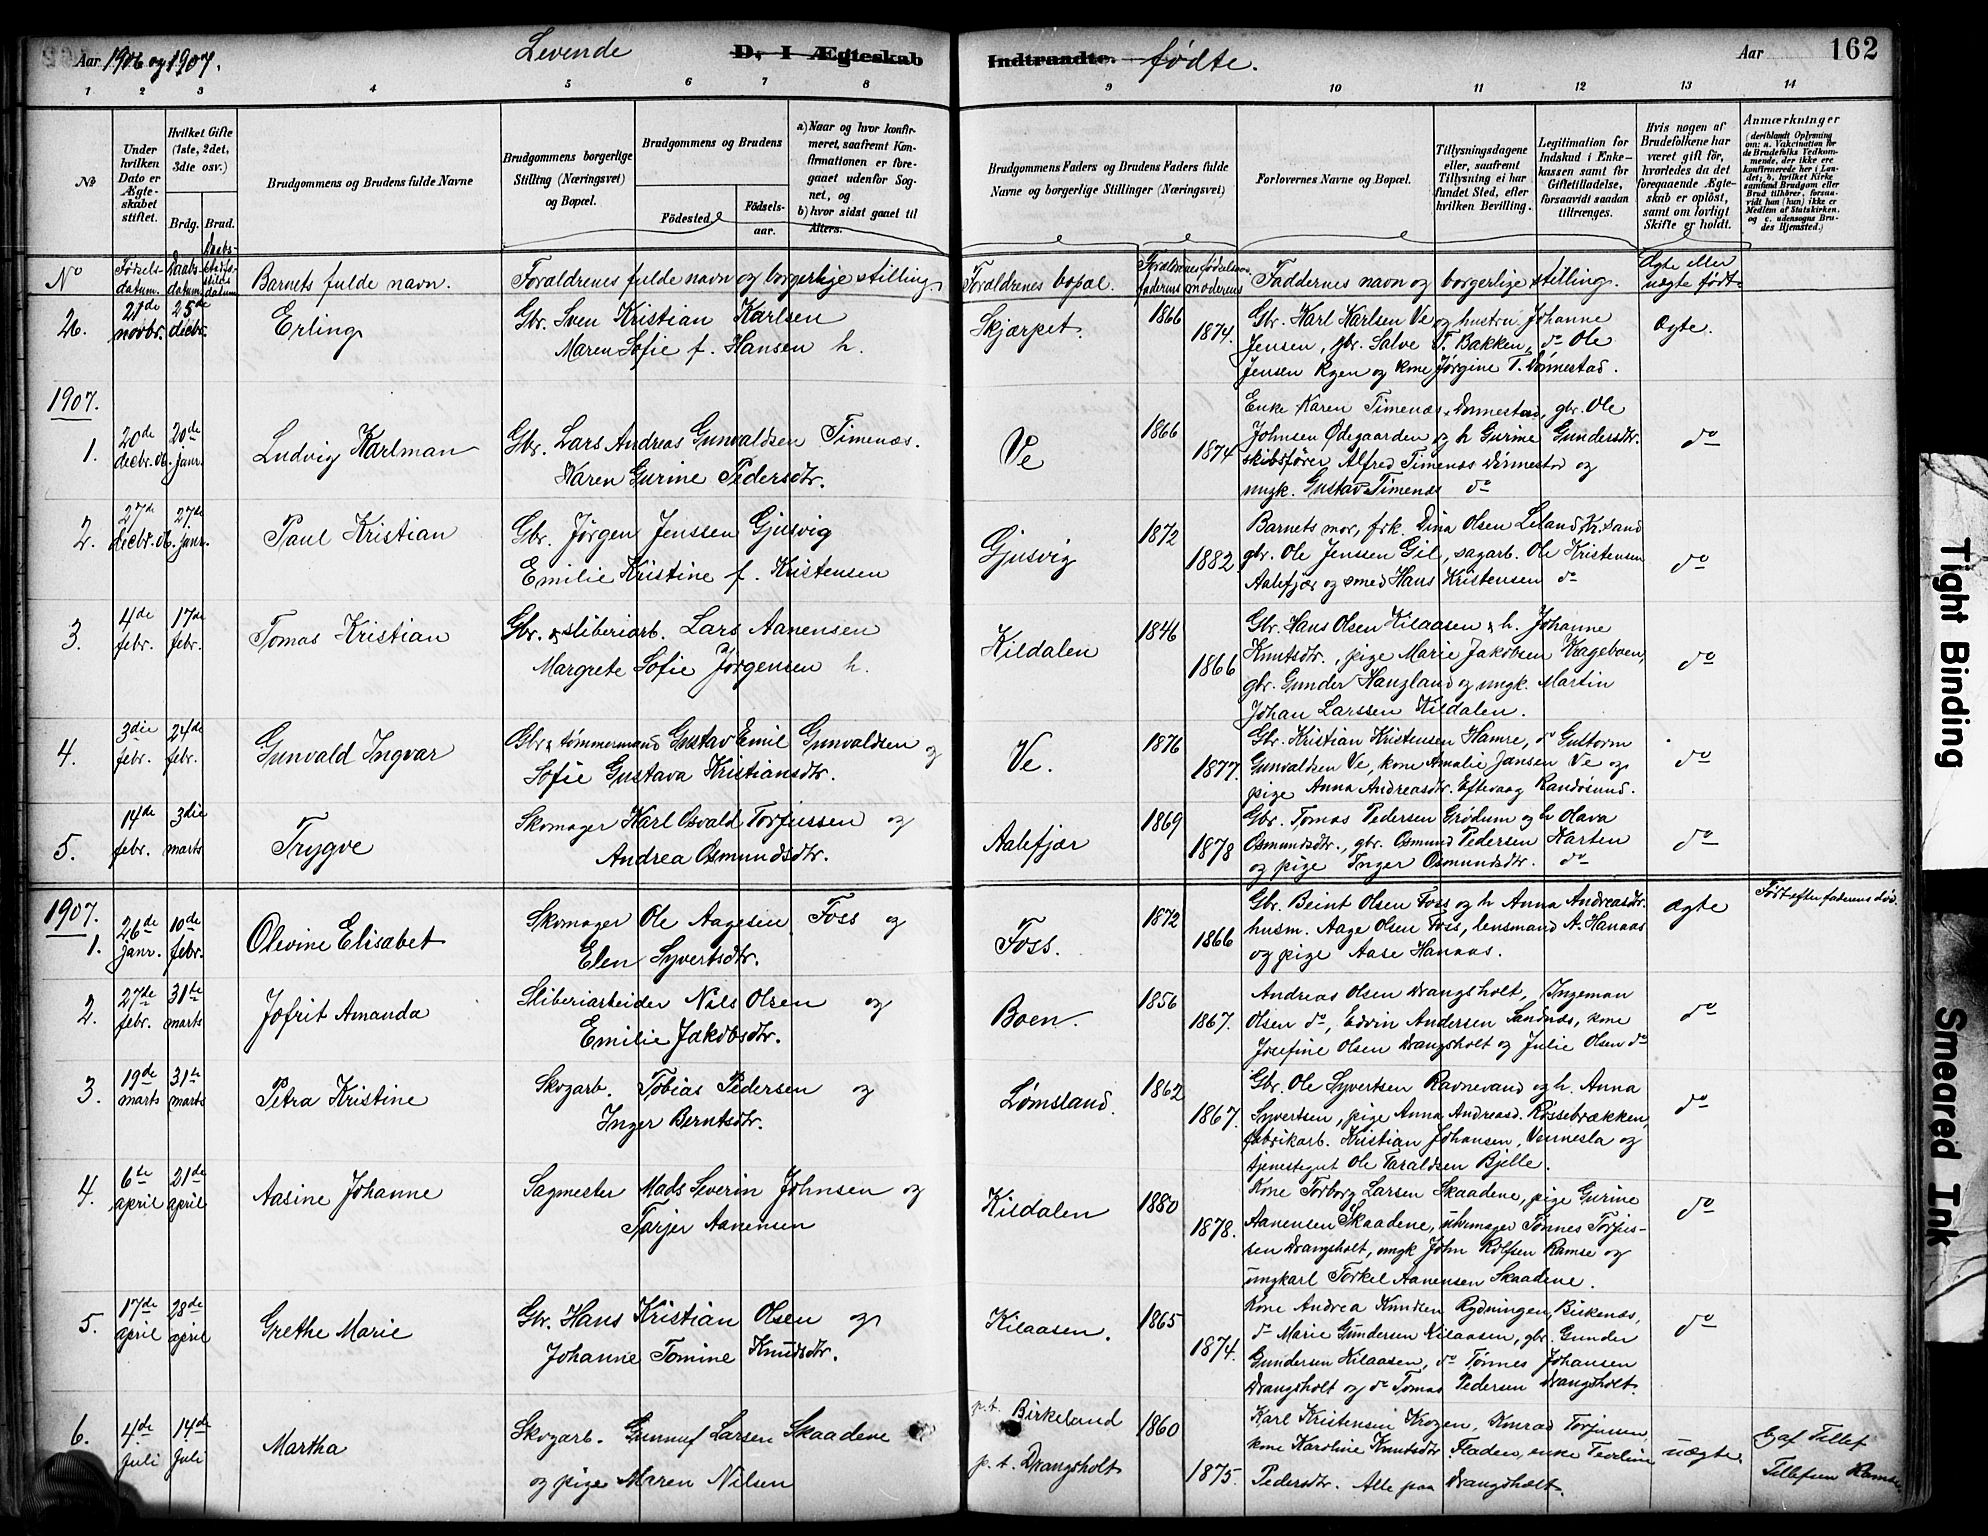 Aar 1906 og 1907.
Levende D. I Ægteskab Indtraadte. fødte.
Aar 162
1 2 3 4 5 6 7 8 9 10 11 12 13 14
№
Under hvilken Dato er Ægteskabet stiftet.
Hvilket Gifte (1ste, 2det, 3die osv.)
Brdg. Brud.
Brudgommens og Brudens fulde Navne
Brudgommens borgerlige Stilling (Næringsvei) og Bopæl.
Brudgommens og Brudens
Fødested. Fødselsaar.
a) Naar og hvor konfirmeret, saafremt Konfirmationen er foregaaet udenfor Sognet, og
b) hvor sidst gaaet til Alters.
Brudgommens Faders og Brudens Faders fulde Navne og borgerlige Stillinger (Næringsvei)
Forlovernes Navne og Bopæl.
Tillysningsdagene eller, saafremt Tillysning ei har fundet Sted, efter hvilken Bevilling.
Legitimation for Indskud i Enkekassen samt for Giftetilladelse, forsaavidt saadan tiltrænges.
Hvis nogen af Brudefolkene har været gift før, hvorledes da det foregaaende Ægteskab er opløst, samt om lovligt Skifte er holdt.
Anmærkninger
(deriblandt Oplysning om: a. Vakcination for de Brudefolks Vedkommende, der ikke ere konfirmerede her i Landet; b. hvilket Kirkesamfund Brudgom eller Brud tilhører, forsaavidt han (hun) ikke er Medlem af Statskirken, og c. udensogns Brudes Hjemsted.)
No Fødselsdatum. Daabsdatum. Daabsattestsdatum Barnets fulde navn. Forældrenes fulde navn og borgerlige stilling. Forældrenes bopæl. Forældrenes fødselsaar faderens moderens Faddernes navn og borgerlige stilling. Ægte eller uægte født.
26. 21de novbr. 25de decbr. Erling
Gbr. Sven Kristian Karlsen
Maren Sofie f. Hansen h.
Skjærpet. 1866 1874.
Gbr. Karl Karlsen Ve og hustru Johanne
Jensen, gbr. Salve T. Bakken, do Ole
Jensen Ryen og kone Jørgine T. Dønnestad.
Ægte.
1907.
1. 20de decbr. 06. 20de janr. Ludvig Karlman
Gbr. Lars Andreas Gunvaldsen Timenæs.
Karen Gurine Pedersdtr.
Ve 1866 1874
Enke Karen Timenæs, Dønnestad, gbr. Ole
Johnsen Ødegaarden og h Gurine Gundersdtr.
skibsfører Alfred Timenæs Dønnestad og
ungk. Gustav Timenæs do
do
2. 27de decbr. 06. 27. janr. Paul Kristian
Gbr. Jørgen Jenssen Gjusvig
Emilie Kristine f. Kristensen
Gjusvig 1872 1882
Barnets mor, frk. Dina Olsen Leland Kr.sand
gbr. Ole Jenssen Gil, sagarb. Ole Kristensen
Aalefjær og smed Hans Kristensen do
do
3. 4de febr. 17de febr. Tomas Kristian
Gbr. & sliberiarb. Lars Aanensen
Margrete Sofie Jørgensen h.
Kildalen 1846 1866
Gbr. Hans Olsen Kilaasen & h. Johanne
Knutsdtr., pige Marie Jakobsen Krageboen,
gbr. Gunder Haugland og ungk. Martin
Johan Larssen Kildalen.
do
4. 3die febr. 24de febr. Gunvald Ingvar
Gbr. & tømmermand Gustav Emil Gunvaldsen og
Sofie Gustava Kristiansdtr.
Ve. 1876 1877.
Gbr. Kristian Kristensen Hamre, do Guttorm
Gunvaldsen Ve, kone Amalie Jansen Ve og
pige Anna Andreasdtr. Eftevaag Randøsund.
do
5. 14de febr. 3die marts Trygve
Skomager Karl Osvald Torjussen og
Andrea Osmundsdtr.
Aalefjær 1869 1878
Gbr. Tomas Pedersen Grødum og h Olava
Osmundsdtr., gbr. Osmund Pedersen Karten
og pige Inger Osmundsdtr. do
do
1907.
1. 26de janr. 10de febr. Olevine Elisabet
Skomager Ole Aagesen Foss og
Elen Syvertsdtr.
Foss. 1872 1866
Gbr. Beint Olsen Foss og h Anna Andreasdtr.
husm. Aage Olsen Foss, lensmand A. Hanaas
og pige Aase Hanaas.
ægte Født efter faderens død.
2. 27de febr. 31te marts Jofrit Amanda
Sliberiarbeider Nils Olsen og
Emilie Jakobsdtr.
Boen. 1856 1867.
Andreas Olsen Drangsholt, Ingeman
Olsen do, Edvin Andersen Sandnes, kone
Josefine Olsen Drangsholt og Julie Olsen do
do
3. 19de marts 31te marts Petra Kristine
Skogarb. Tobias Pedersen og
Inger Berntsdtr.
Lømsland. 1862 1867.
Gbr. Ole Syvertsen Ravnevand og h. Anna
Syvertsen, pige Anna Andreasd. Røssebrækken,
fabrikarb. Kristian Johansen, Vennesla og
tjenestegut Ole Taraldsen Bjelle.
do
4. 6te april 21de april Aasine Johanne
Sagmester Mads Severin Johnsen og
Tarjer Aanensen
Kildalen 1880 1878.
Kone Torborg Larsen Skaadene, pige Gurine
Aanensen Skaadene, uhrmager Tønnes Torjussen Drangsholt, ungk John Rolfsen Ramse og
ungkarl Torkel Aanensen Skaadene.
do
5. 17de april 28de april Grethe Marie
Gbr. Hans Kristian Olsen og
Johanne Tomine Knudsdtr.
Kilaasen. 1865 1874.
Kone Andrea Knudsen Rydningen, Birkenæs,
do Marie Gundersen Kilaasen, gbr. Gunder
Gundersen Kilaasen, do Tønnes Johansen
Drangsholt og do Tomas Pedersen Drangsholt.
do
6. 4de juli 14de juli Martha
Skogarb. Gunnuf Larsen Skaadene
og pige Maren Nilsen
p.t. Birkeland
p.t. Drangsholt
1860 1875.
Karl Kristensen Krogen, Konrad Torjussen,
kone Karoline Knutsdtr Fladen, enke Teoline
Pedersdtr. Alle paa Drangsholt.
uægte
G. af Tellef
Tellefsen Ramse
Tight Binding
Smeared Ink